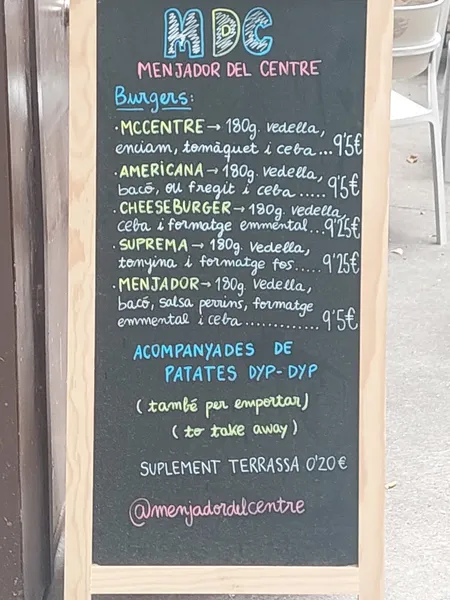 MDC
MENJADOR DEL CENTRE
Burgers:
· MCCENTRE → 180g. vedella,
enciam, tomàquet i ceba ... 9'5€
· AMERICANA → 180g. vedella,
bacó, ou fregit i ceba ..... 9'5€
· CHEESEBURGER → 180g. vedella,
ceba i formatge emmental ... 9'25€
· SUPREMA → 180g. vedella,
tonyina i formatge fos ..... 9'25€
· MENJADOR → 180g. vedella,
bacó, salsa perrins, formatge
emmental i ceba ............ 9'5€
ACOMPANYADES DE
PATATES DYP-DYP
(també per emportar)
(to take away)
SUPLEMENT TERRASSA 0'20€
@menjadordelcentre